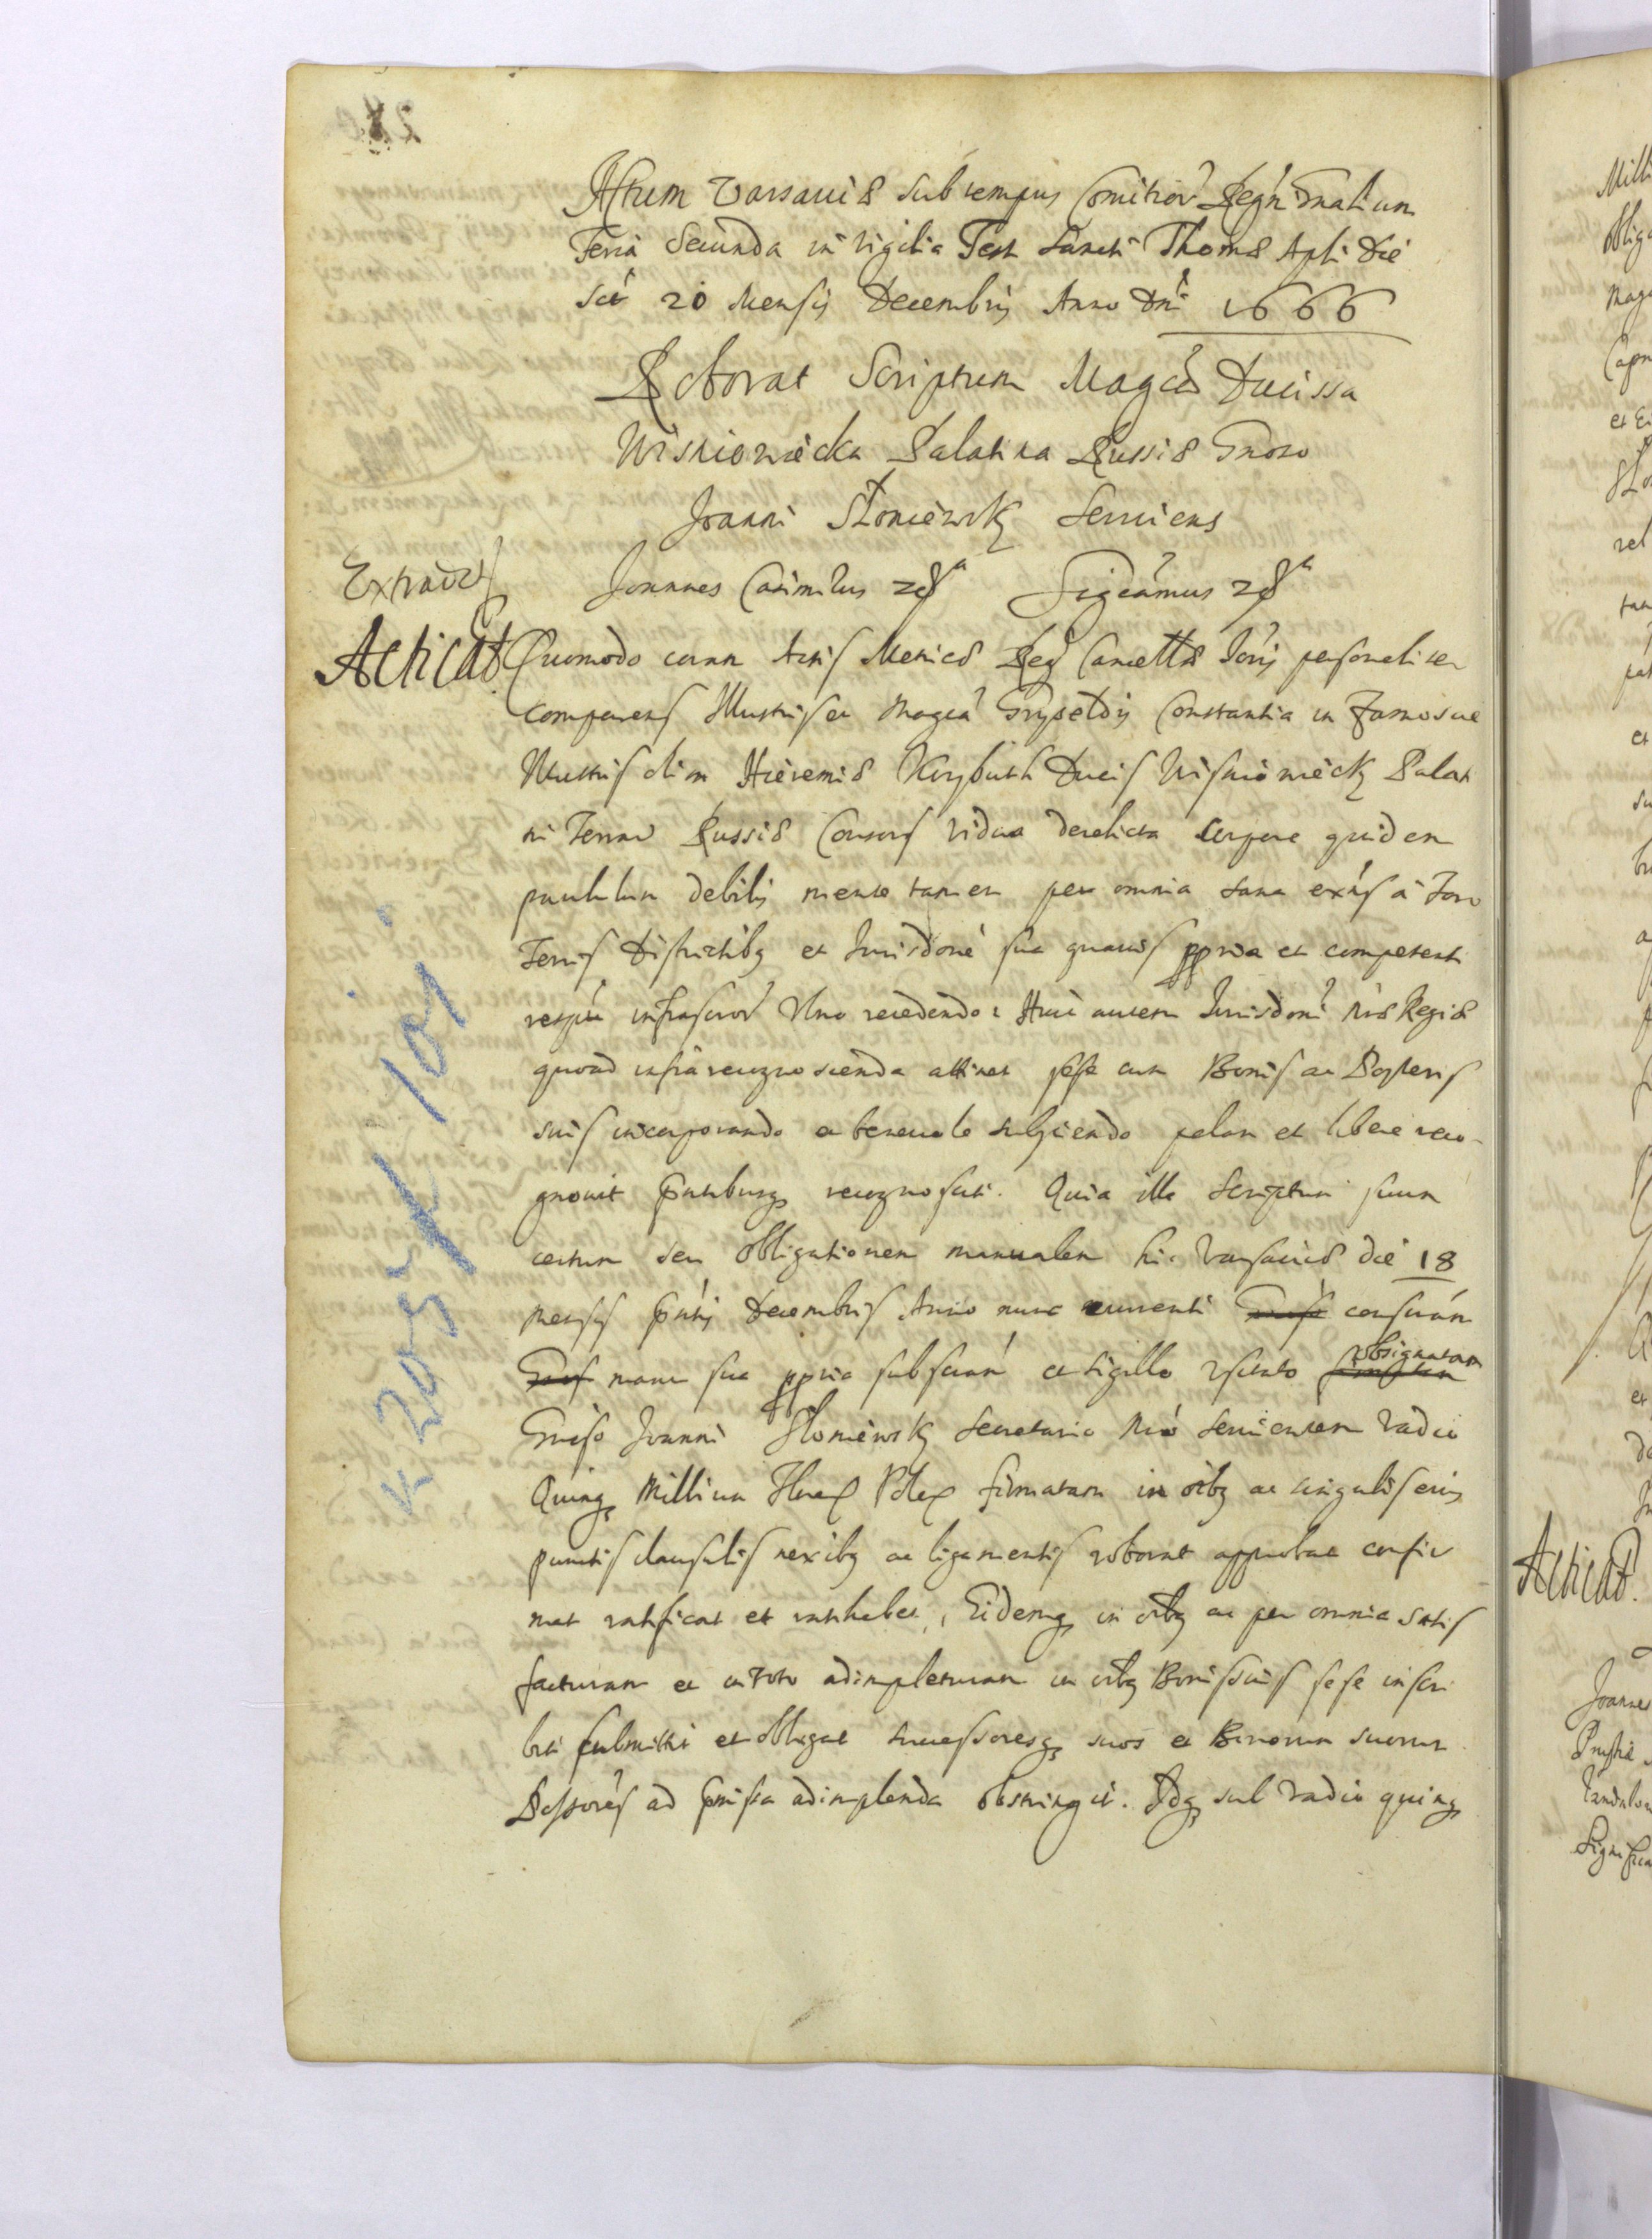 Actum Varsaviæ sub tempus Comitior Regn Gnalium
Feria Secunda in Vigilia Festi Sancti Thomæ Apli Die
scit 20 Mensis Decembris Anno Dni 1666
Roborat Scriptum Magca Ducissa
Wisniowiecka Palatina Russiæ Gnoso
Joanni Słoniewsky Serviens
Extradit
Joannes Casimirus
Acticat
Quomodo coram Actis Metrices Reg Cancellæ Joris personaliter
comparens Illustris et Magca Gryzeldis Constantia in Zamoscie
Illustris olim Hieremiæ Korybuth Ducis Wisniowiecky Palati
ni Terrar Russiæ Consors Vidua derelicta corpore quidem
paululum debilis mente tamen per omnia sana exns a Foro
Terris Districtibq et Jurisdone sua quavis ppria et competenti
respu infrascror Uno recedendo: Huic autem Jurisdoni Nræ Regiæ
quoad infra recognoscenda attinet sese cum Bonis ac Posteris
suis incorporando ac benevole subyciendo palam et libere reco-
gnovit pntibusq recognoscit. Quia illa Scriptum suum
certum seu obligationem manualem hic Varsaviæ die 18
mensis pntis Decembris Anno nunc currenti conscram
manu sua ppria subscram et sigillo usitato obsignatam
Gnoso Joanni Słoniewsky Secretario Nro servientem Vadio
Quinq Millium Floren Polcx firmatam in oibq ac singulis eius
punctis clausulis nexibq ac ligamentis roborat approbat confir
mat ratificat et ratihabet, Eidemq in oibq ac per omnia satis
facturam et in toto adimpleturam in oibq Bonis suis sese inscri
bit submittit et obligat successoresq suos et Bonorum suorum
Possores ad pmissa adimplenda obstringit. Idq sub Vadio quinq
K 205 f 101